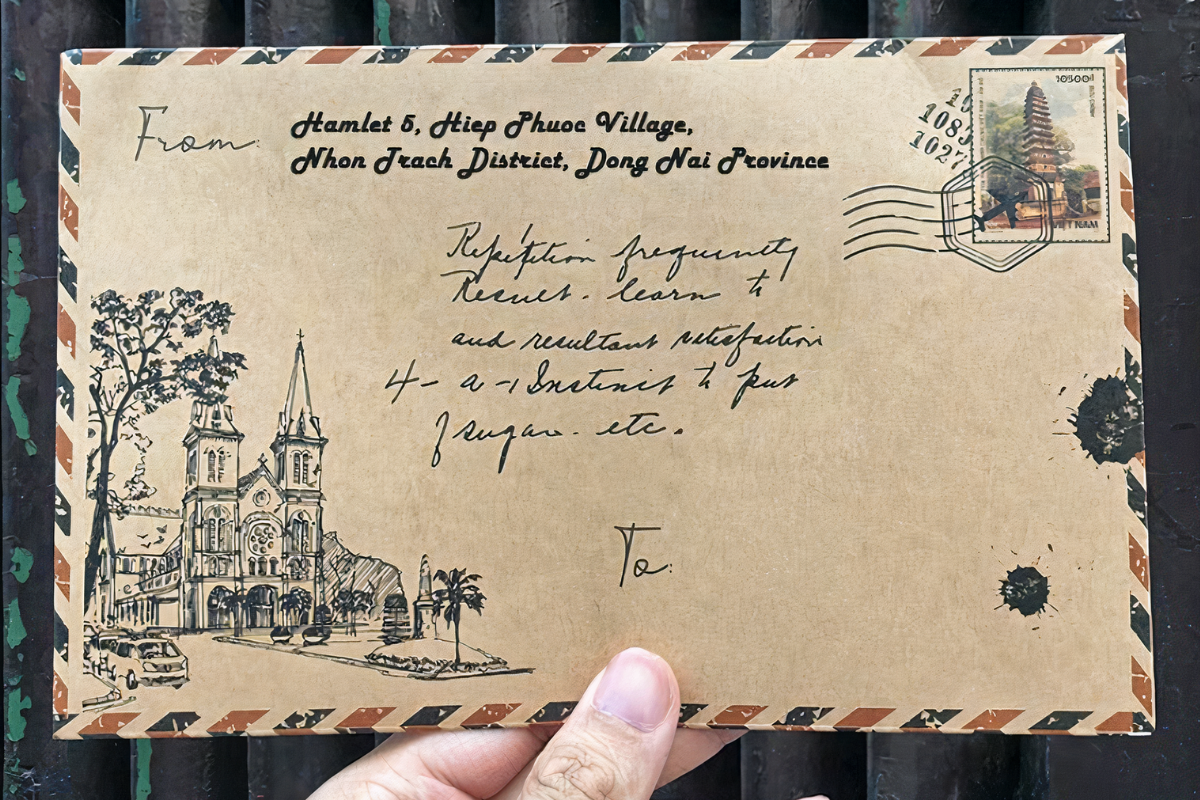 From:
Hamlet 5, Hiep Phuoc Village,
Nhon Trach District, Dong Nai Province
10500đ
1083
1027
VIET NAM
Repetition frequently
Result - learn to
and resultant satisfaction
4 - a - Instinct to put
sugar - etc.
To: